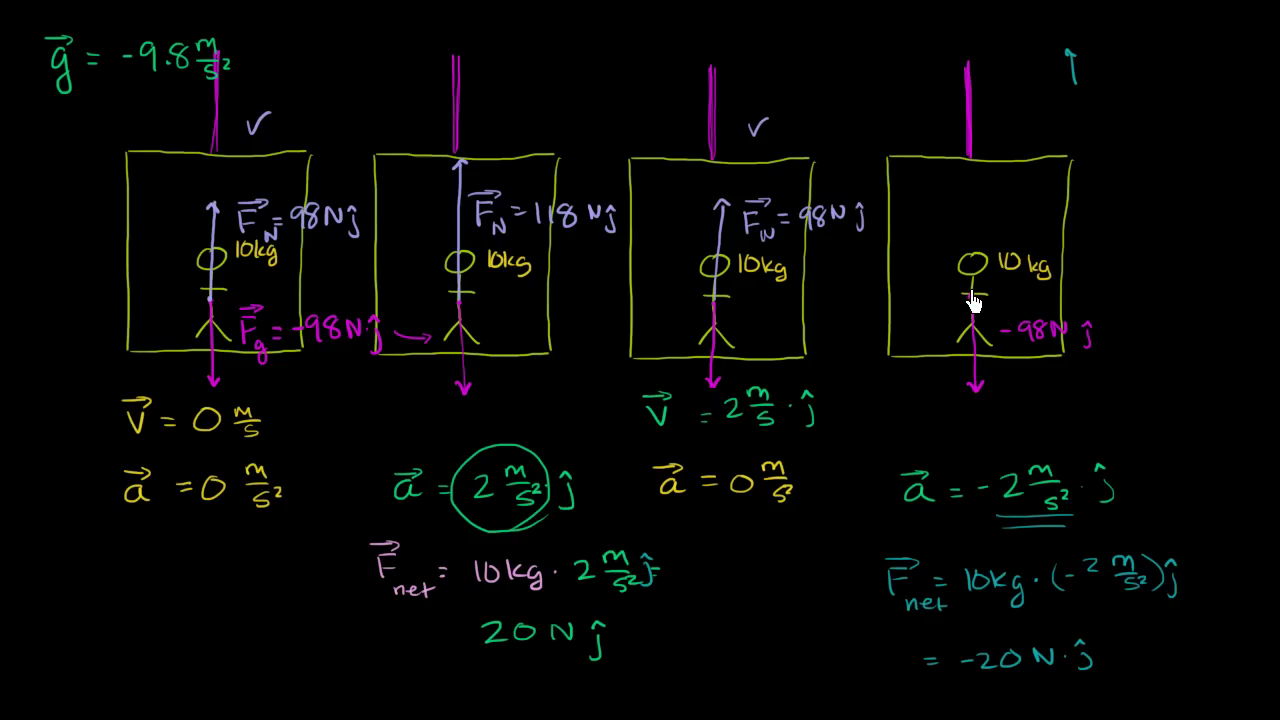 g⃗ = -9.8 m/s²
✓ ✓
F⃗_N = 98N ĵ
10kg
F⃗_g = -98N·ĵ →
v⃗ = 0 m/s
a⃗ = 0 m/s²
F⃗_N = 118N ĵ
10kg
a⃗ = 2 m/s² ĵ
F⃗_net = 10kg · 2 m/s² ĵ =
20 N ĵ
F⃗_N = 98N ĵ
10kg
v⃗ = 2 m/s · ĵ
a⃗ = 0 m/s²
10kg
-98N ĵ
a⃗ = -2 m/s² · ĵ
F⃗_net = 10kg · (-2 m/s²) ĵ
= -20 N · ĵ